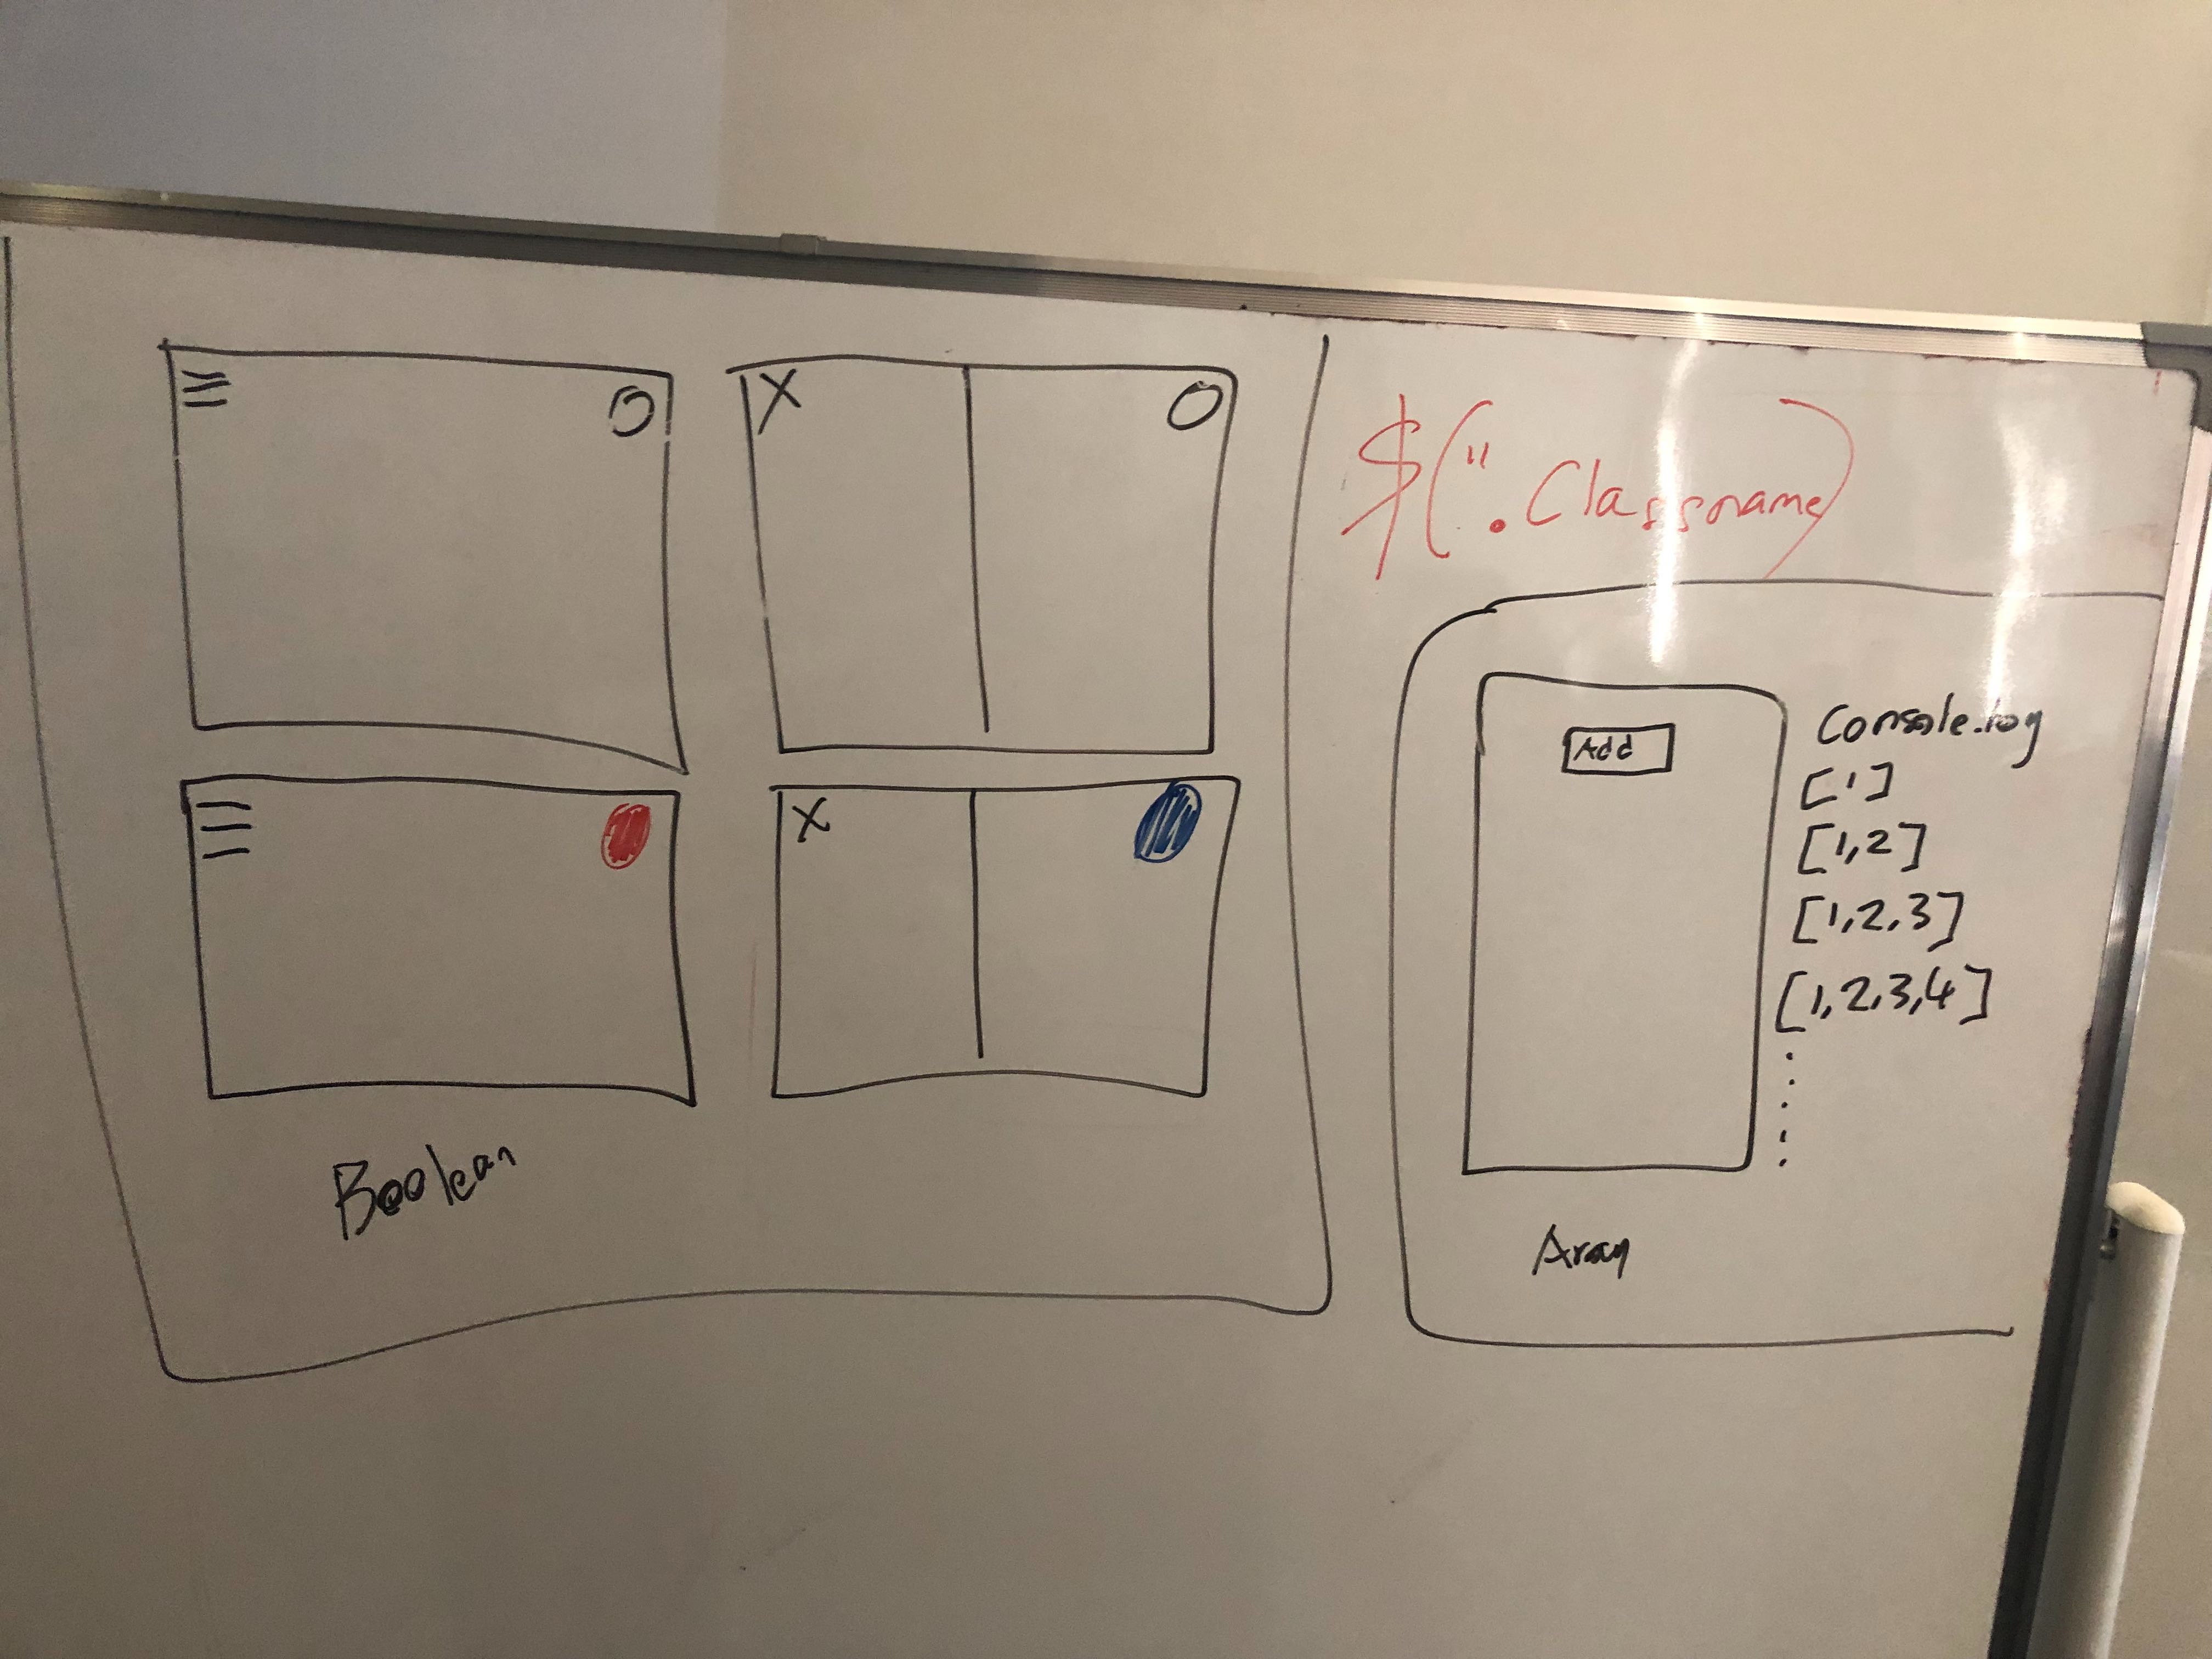 X
X
Boolean
$(".Classname)
Add
Console.log
[1]
[1,2]
[1,2,3]
[1,2,3,4]
Array